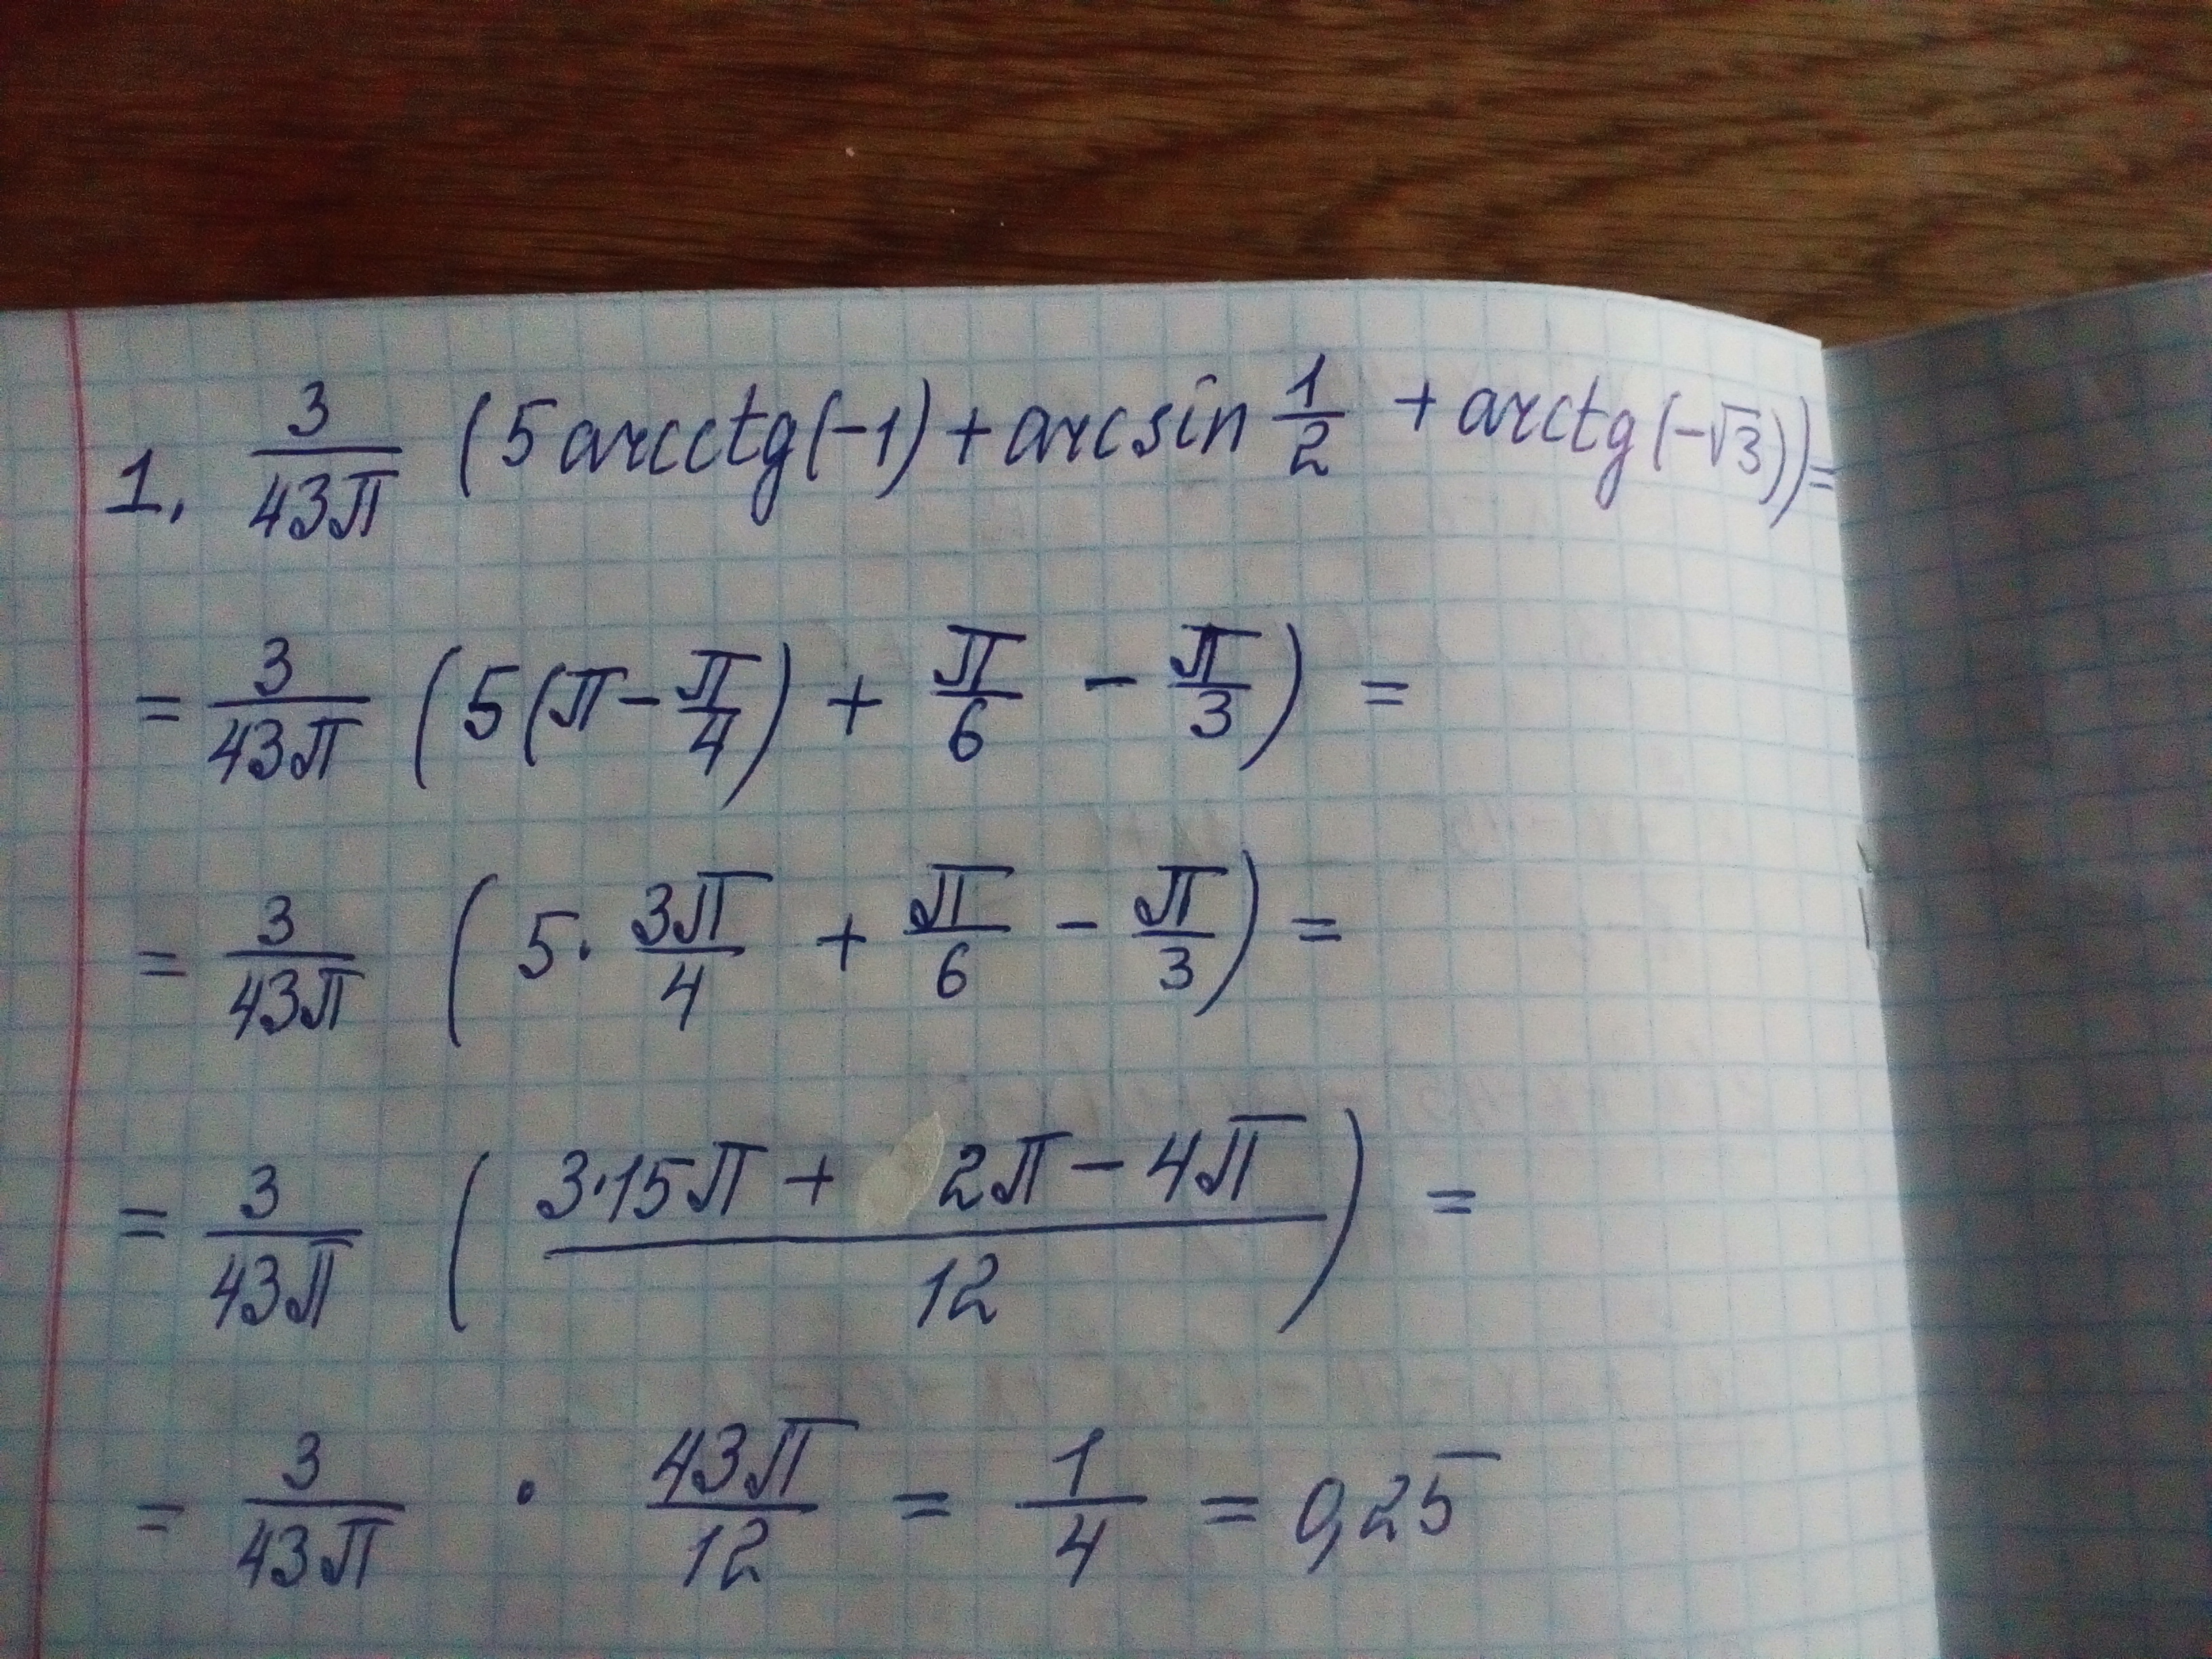 1. \frac{3}{43π} (5arcctg(-1)+arcsin \frac{1}{2} + arctg(-√3))=
= \frac{3}{43π} (5(π-\frac{π}{4}) + \frac{π}{6} - \frac{π}{3}) =
= \frac{3}{43π} (5·\frac{3π}{4} + \frac{π}{6} - \frac{π}{3}) =
= \frac{3}{43π} (\frac{3·15π + 2π - 4π}{12}) =
= \frac{3}{43π} · \frac{43π}{12} = \frac{1}{4} = 0,25